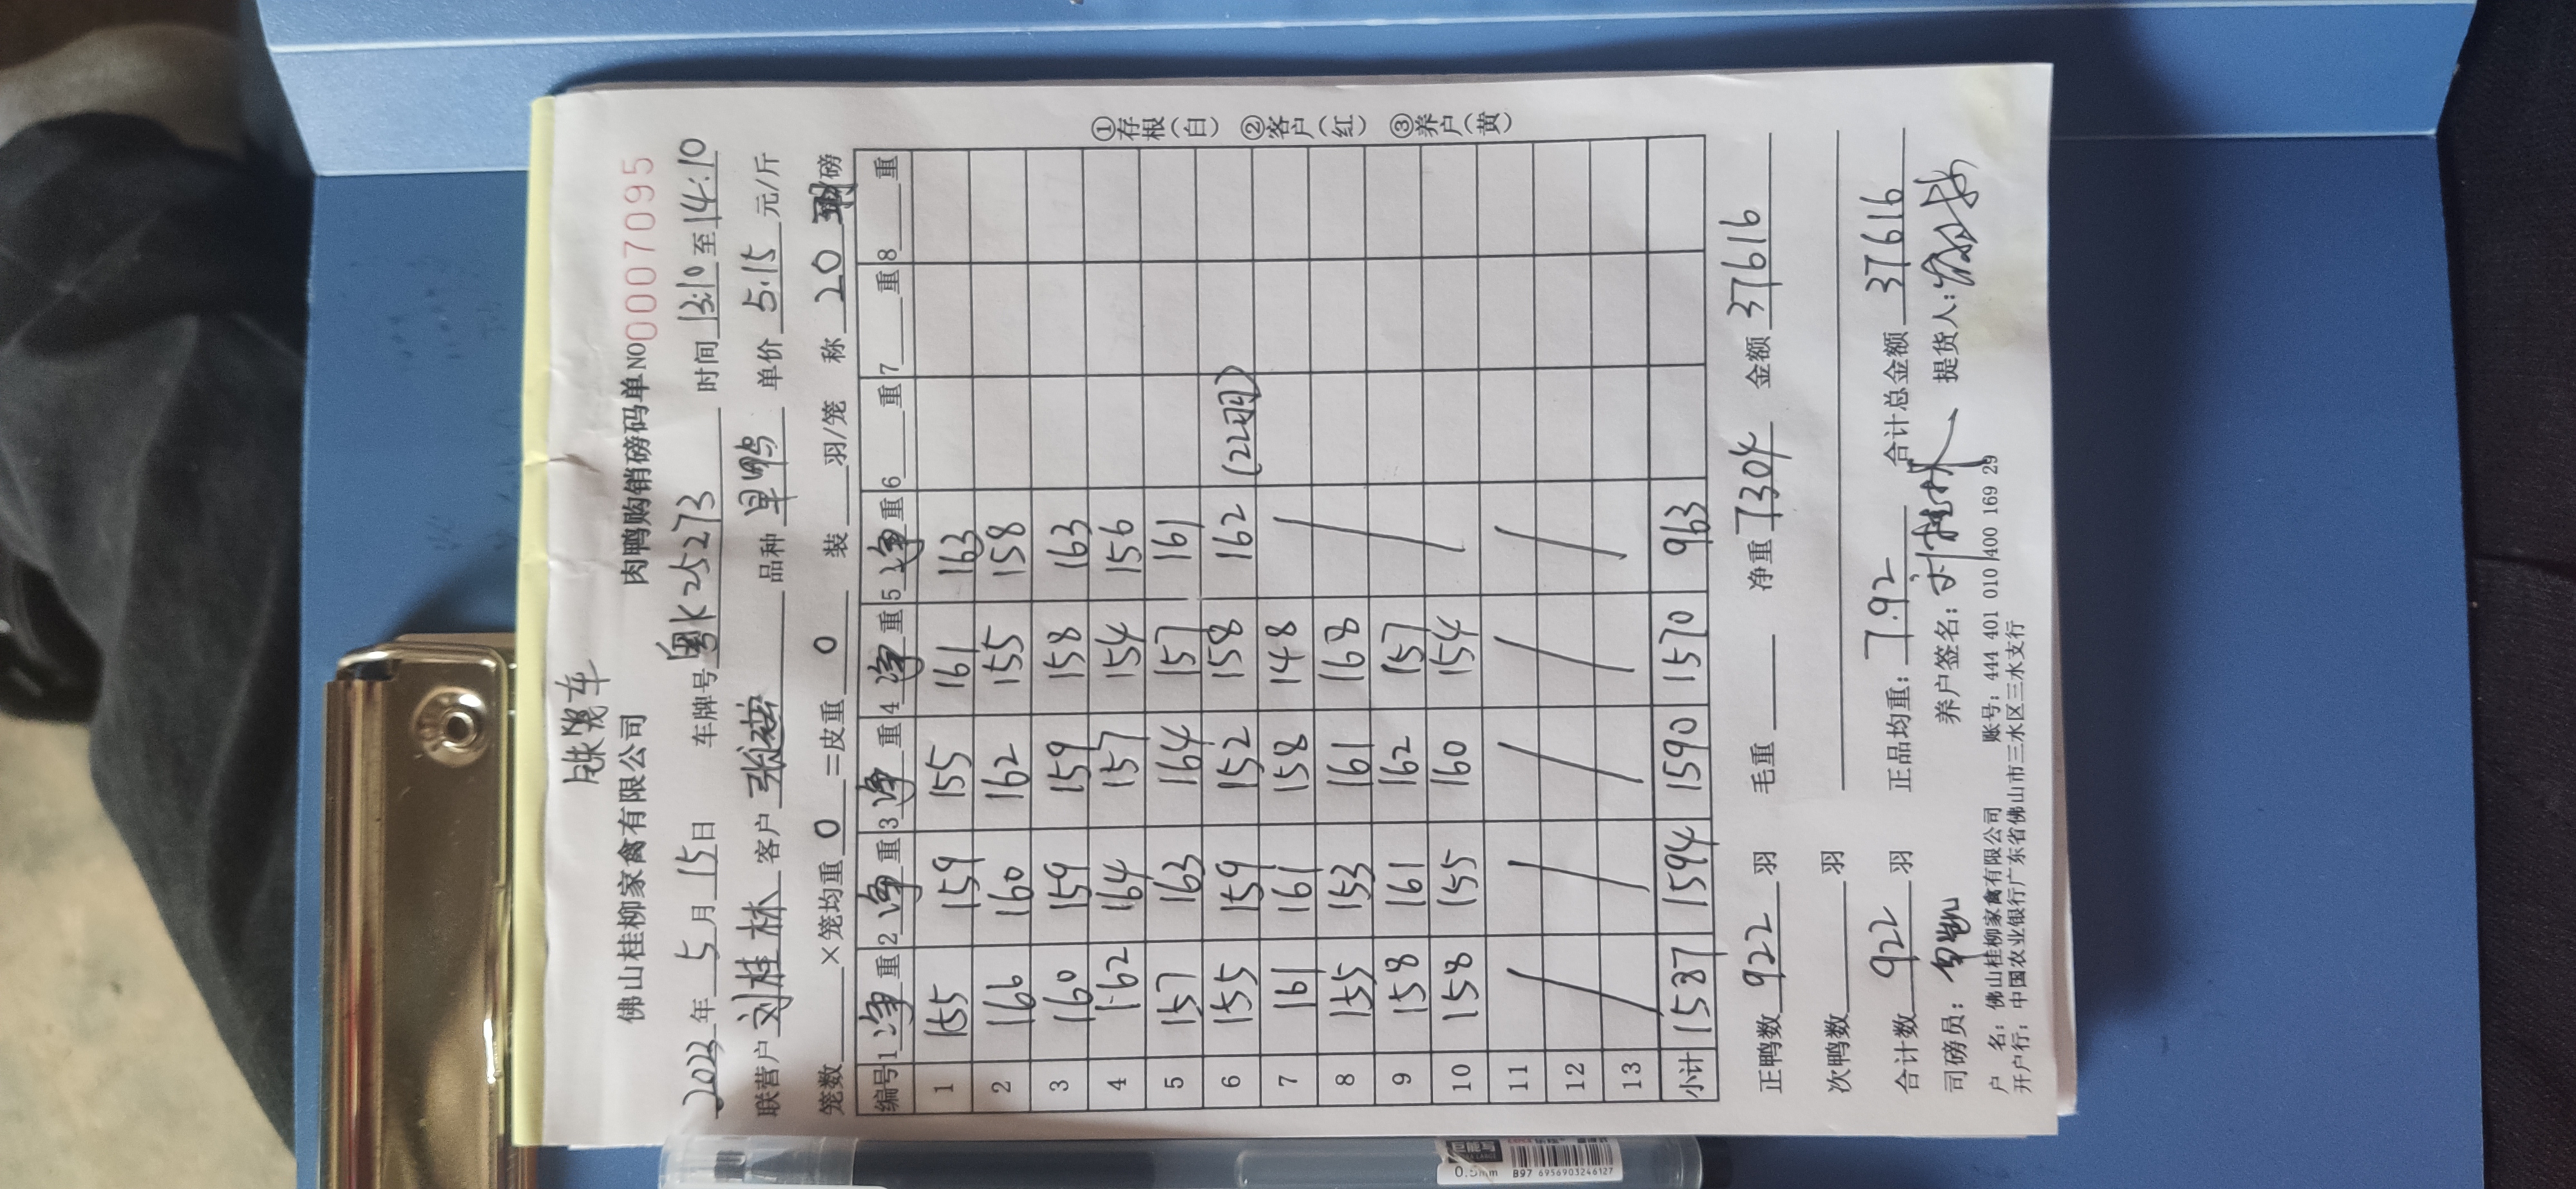 佛山桂柳家禽有限公司 肉鸭购销磅码单 NO 0007095
2022年5月15日 车牌号粤K25273 时间13:10至14:10
联营户刘桂林 客户 品种 单价5.15元/斤
笼数 ×笼均重0=皮重0 装 羽/笼 称20 磅
编号 1净重 2净重 3净重 4净重 5净重 6 重 7 重 8 重
1 155 159 155 161 163
2 166 160 162 155 158
3 160 159 159 158 163
4 162 164 157 154 156
5 157 163 164 157 161
6 155 159 152 158 162 (22羽)
7 161 161 158 148
8 155 153 161 168
9 158 161 162 157
10 158 155 160 154
11
12
13
小计 1587 1594 1590 1570 963
①存根(白) ②客户(红) ③养户(黄)
正鸭数922羽 毛重 净重7304 金额37616
次鸭数 羽
合计数922羽 正品均重:7.92 合计总金额37616
司磅员: 养户签名:刘桂林 提货人:
户 名:佛山桂柳家禽有限公司 账号:444 401 010 400 169 29
开户行:中国农业银行广东省佛山市三水区三水支行
0.5mm
B97 6956903246127